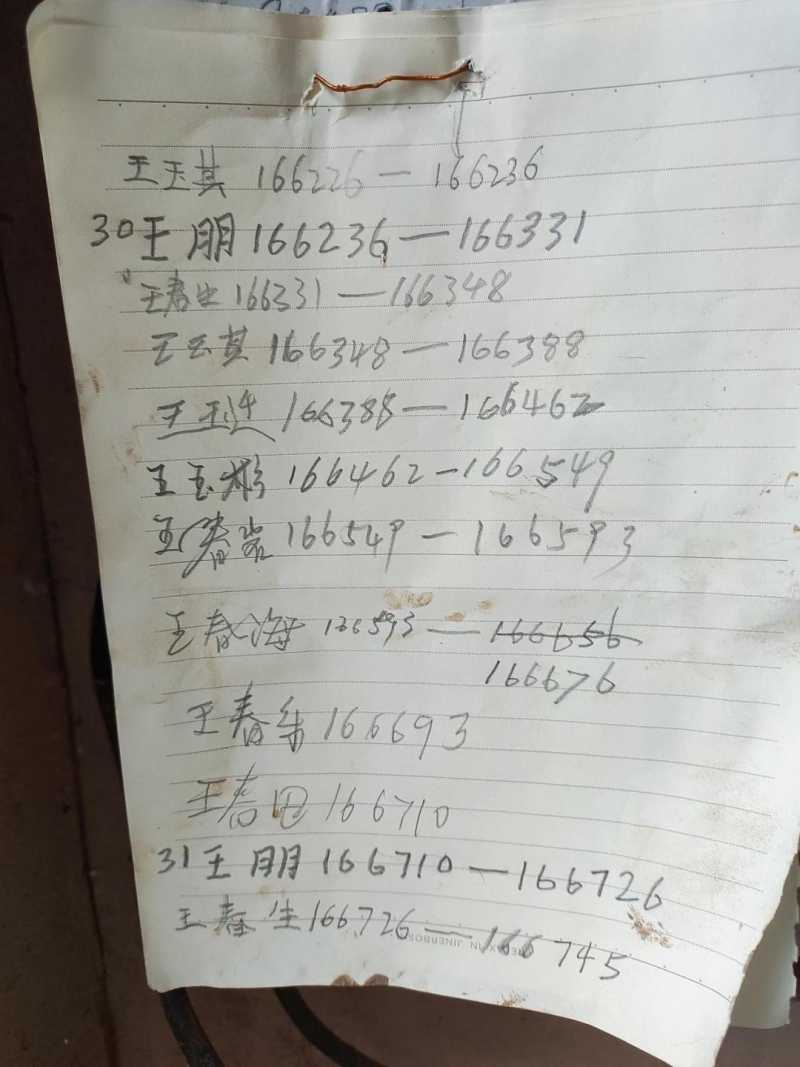 王玉其 166226—166236
30王朋166236—166331
王春生166331—166348
王玉其166348—166388
王玉进 166388—166462
王玉彬 166462-166549
王春岩 166549—166593
王春海 166593—166656
166676
王春朱 166693
王春田 166710
31王朋166710—166726
王春生166726—166745